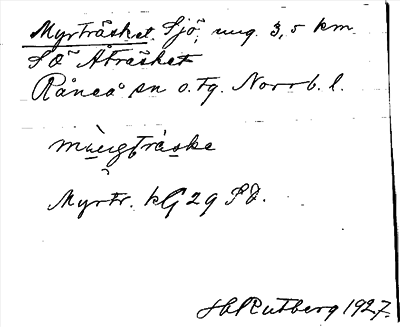 Myrträsket Sjö, ung. 3,5 km.
SÖ Åträsket
Råneå sn o. tg. Norrb. l.
Myrtr. kG 29 SÖ.
Hb Rutberg 1927.